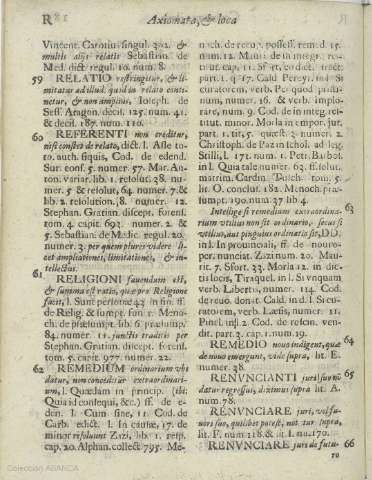 R
Axiomata, & loca
Vincent. Carotiu. singul. 292. &
multis alijs relatis Sebastian. de
Med. dict. regul. 10. num. 8.
59 RELATIO restringitur, & li-
mitatur ad illud, quod in relato conti-
netur, & non amplius, Ioseph. de
Seff. Aragon. decis. 125. num. 41.
& decis. 187. num. 110.
60 REFERENTI non creditur,
nisi constet de relato, dict. l. Asse to-
ro. auth. siquis, Cod. de edend.
Sur. conf. 5. numer. 57. Mar. An-
ton. variar. lib. 1. resolut. 28. nu-
mer. 5. & resolut. 64. numer. 7. &
lib. 2. resolution. 18. numer. 12.
Stephan. Gratian. discept. forens.
tom. 4. capit. 692. numer. 2. &
5. Sebastian de Medic. regul. 20.
numer. 3. per quem pluries videre li-
cet ampliationes, limitationes, & in-
tellectus.
61 RELIGIONI fauendum est,
& summa est ratio, quæ pro Religione
facit, l. Sunt personæ 43. in fin. ff.
de Relig. & sumpt. fun. r. Meno-
ch. de præsumpt. lib. 6. præsump.
84. numer. 11. iunctis traditis per
Stephan. Gratian. discept. forens.
tom. 5. capit. 977. numer. 22.
62 REMEDIUM ordinarium vbi
datur, non conceditur extraordinari-
um, l. Quædam in princip. (ibi:
Quia id consequi, &c.) ff. de e-
den. l. Cum sine, 11. Cod. de
Carb. edict. l. In causæ, 17. de
minor resoluunt Zizi, lib. 1. resp.
cap. 20. Alphan. collect. 795. Me-
noch. de recup. possess. remed. 15.
num. 12. Maur. de in integr. res-
titut. cap. 11. Sfort. cod. dict. tract.
part. 1. q. 17. Cald. Pereyr. ind. Si
curatorem, verb. Per quod postu-
num, numer. 16. & verb. implo-
rare, num. 9. Cod. de in integ. rei-
titut. minor. Moria in tempor. iur.
part. 1. tit. 5. quæst. 3. numer. 2.
Christoph. de Paz in schol. ad leg.
Stilli, l. 171. num. 1. Petr. Barbos.
in l. Quia tale numer. 63. ff. solut.
matrim. Gardin. Tosch. tom. 5.
lit. O. conclus. 182. Menoch. præ-
sumpt. 190. num. 37. lib. 4.
Intellige si remedium extraordina- 63
rium vtilius non sit ordinario, secus si
vtilius, aut pinguius ordinario sit, DD.
in l. In prouinciali, ff. de nouro-
per. nunciat. Zizi num. 20. Mau-
rit. 7. Sfort. 33. Moria 12. in dic-
tis locis, Tiraquel. in l. Si vnquam
verb. Libertis, numer. 114. Cod.
de reuoc. donat. Cald. in d. l. Si cu-
ratorem, verb. Læsis, numer. 11.
Pinel. ad l. 2. Cod. de rescin. ven-
dit. part. 2. cap. 1. num. 19.
REMEDIO nouo indigent, quæ 64
de nouo emergunt, vide supra, lit. E.
numer. 38.
RENVNCIANTI iuri suo nõ 65
datur regressus, diximus supra lit. A.
num. 78.
RENVNCIARE iuri, vel fa-
uori suo, quilibet potest, not. tur supra,
lit. F. num. 118. & lit. I. nu. 170.
RENVNCIARE iuri de futu- 66
ro
Colección ABANCA